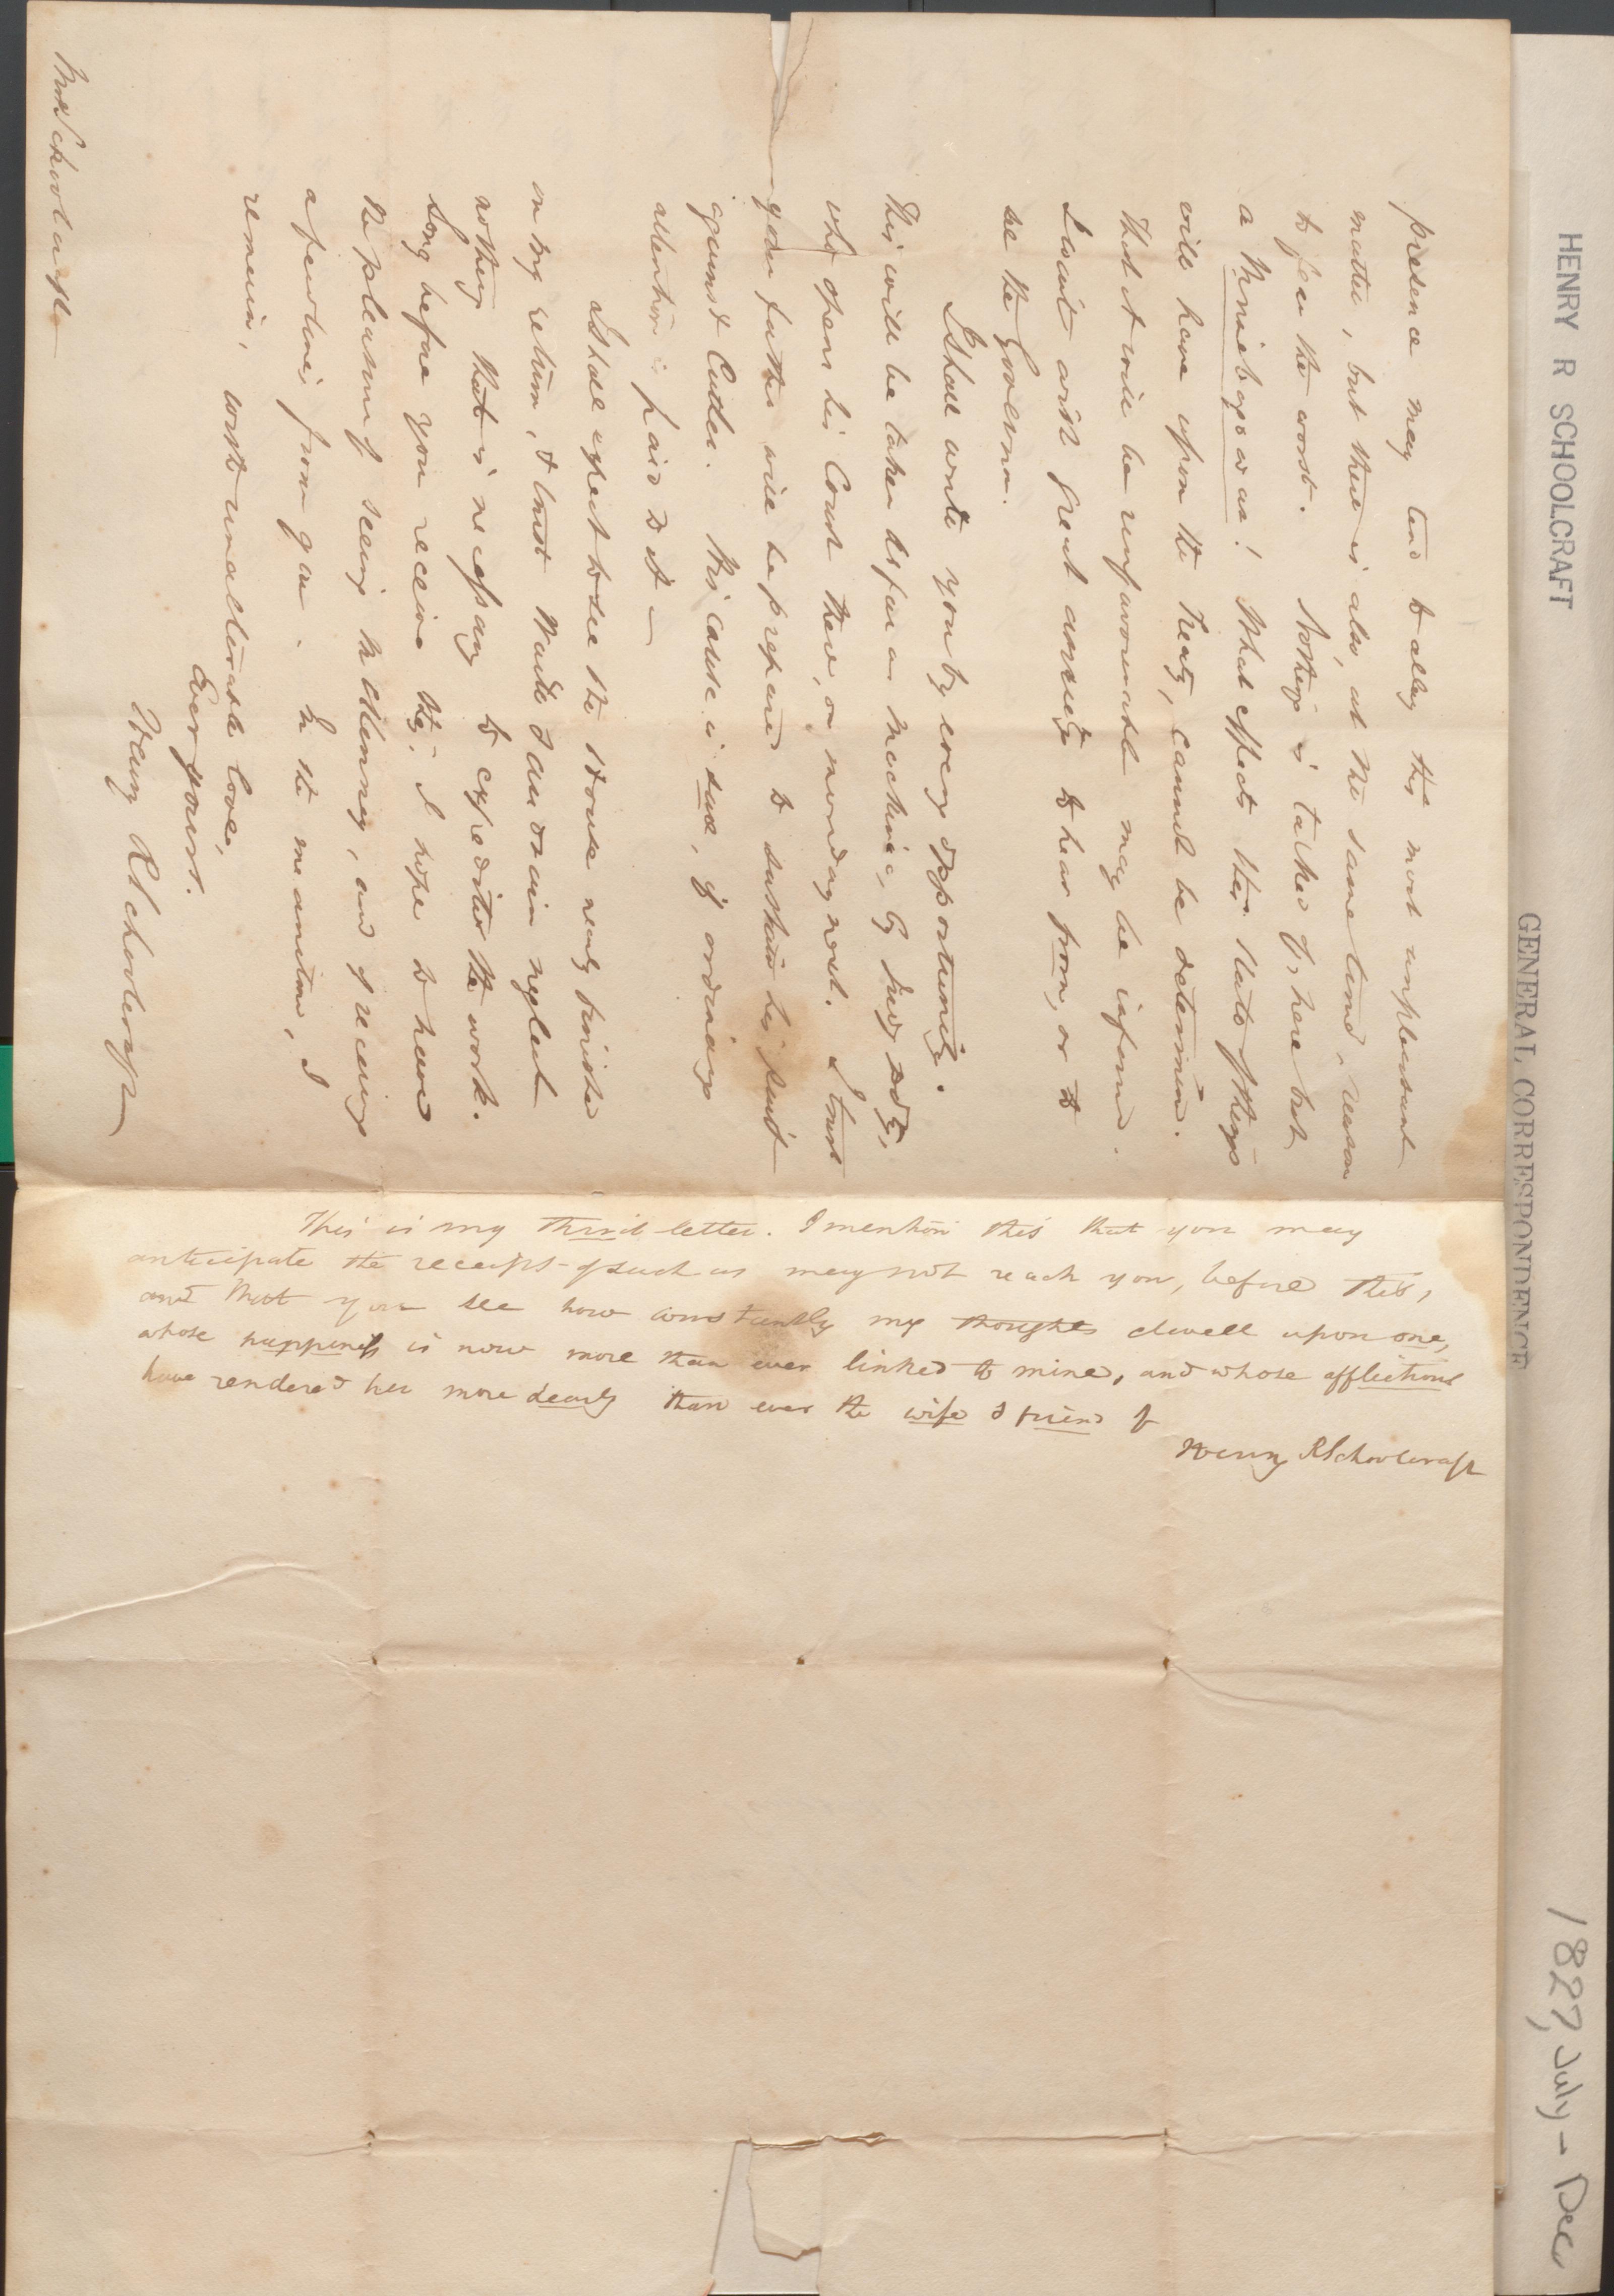 presence may tend to allay the most unpleasant
matter, but there is also, at the same time, reason
to fear the worst. Nothing is talked of, here but
a Winnebago war! What effects this state of things
will have upon the Treaty, cannot be determined.
That it will be unfavourable may be inferred.
I wait with great anxiety to hear from, or to
see the Governor.
I shall write you by every opportunity.
This will be taken as far as Mackinac, by Judge
who opens his Court there, on monday next. I trust
your father will be prepared to sustain his suit
against Cutler. His cause is sure, if ordinary
attention is paid to it —
I shall expect to see the House nearly finished
on my return, & trust Wade & Audrain neglect
nothing that is necessary to expedite the work.
Long before you receive this, I hope to have
the pleasure of seeing McKenney, and of receiving
a few lines from you. In the meantime, I
remain, with unalterable love,
Ever yours.
Henry R Schoolcraft
Mrs Schoolcraft
This is my third letter. I mention this that you may
anticipate the receipt of such as may not reach you, before this,
and that you see how constantly my thoughts dwell upon one,
whose happiness is now more than ever linked to mine, and whose afflictions
have rendered her more dearly than ever the wife & friend of
Henry R Schoolcraft
HENRY R SCHOOLCRAFT
GENERAL CORRESPONDENCE
1827, July - Dec